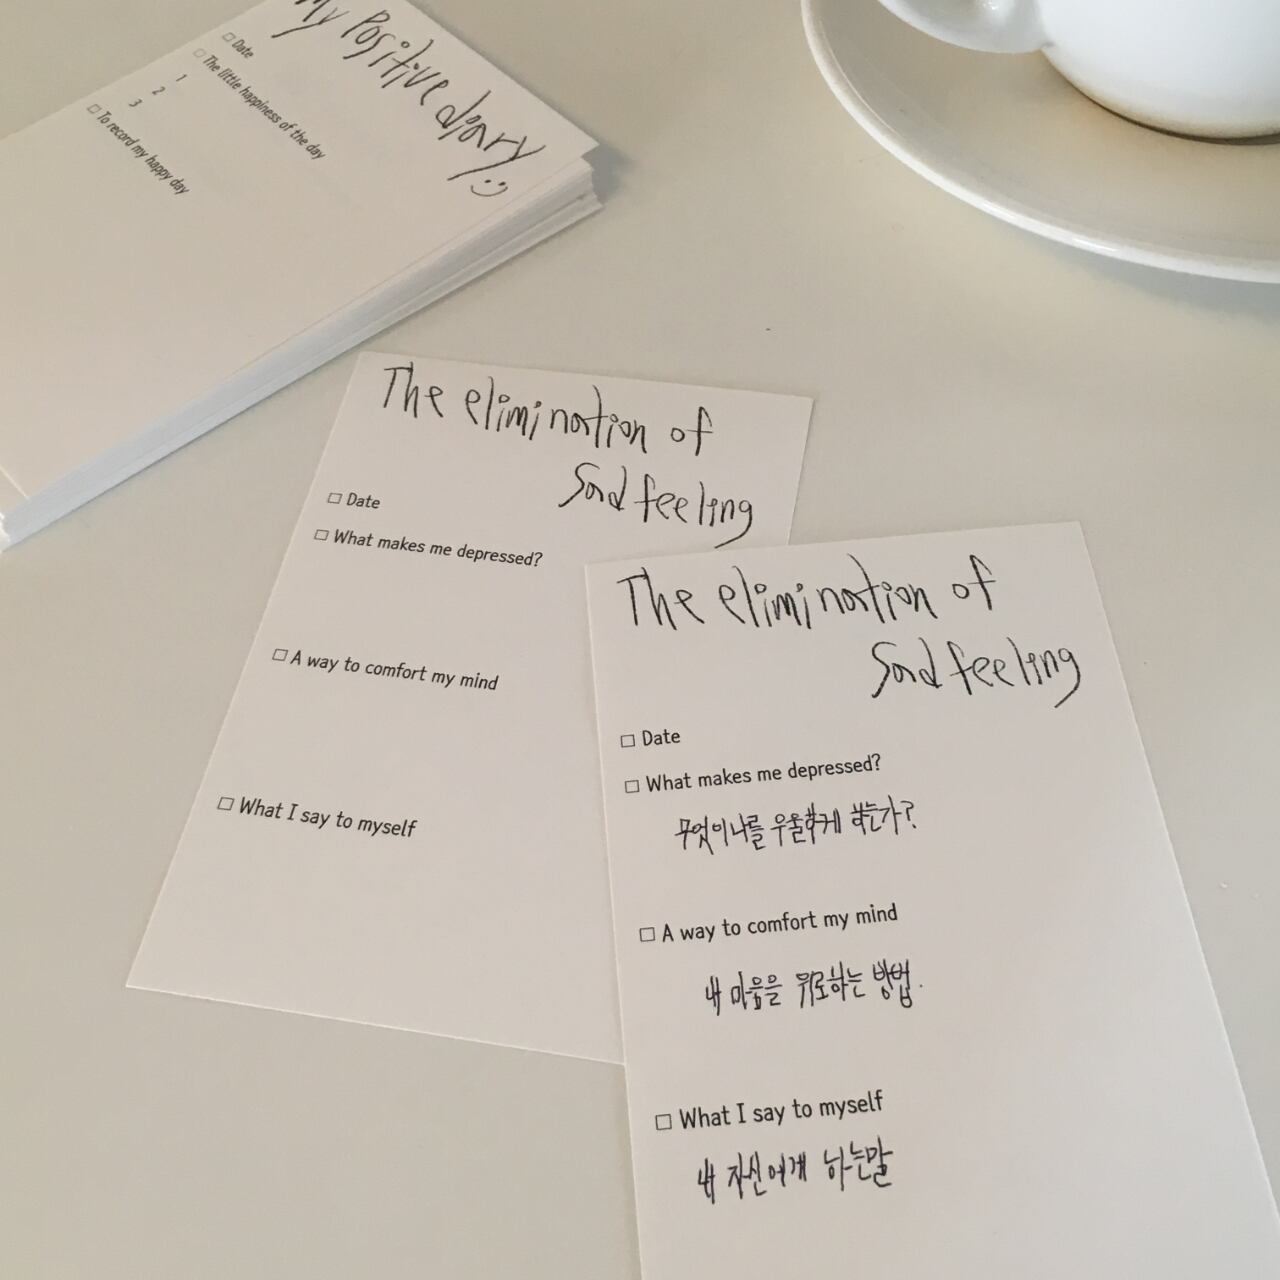 My Positive diary
☐ Date
☐ The little happiness of the day
1
2
3
☐ To record my happy day
The elimination of
Sad feeling
☐ Date
☐ What makes me depressed?
☐ A way to comfort my mind
☐ What I say to myself
The elimination of
Sad feeling
☐ Date
☐ What makes me depressed?
무엇이 나를 우울하게 하는가?
☐ A way to comfort my mind
내 마음을 위로하는 방법.
☐ What I say to myself
내 자신에게 하는말